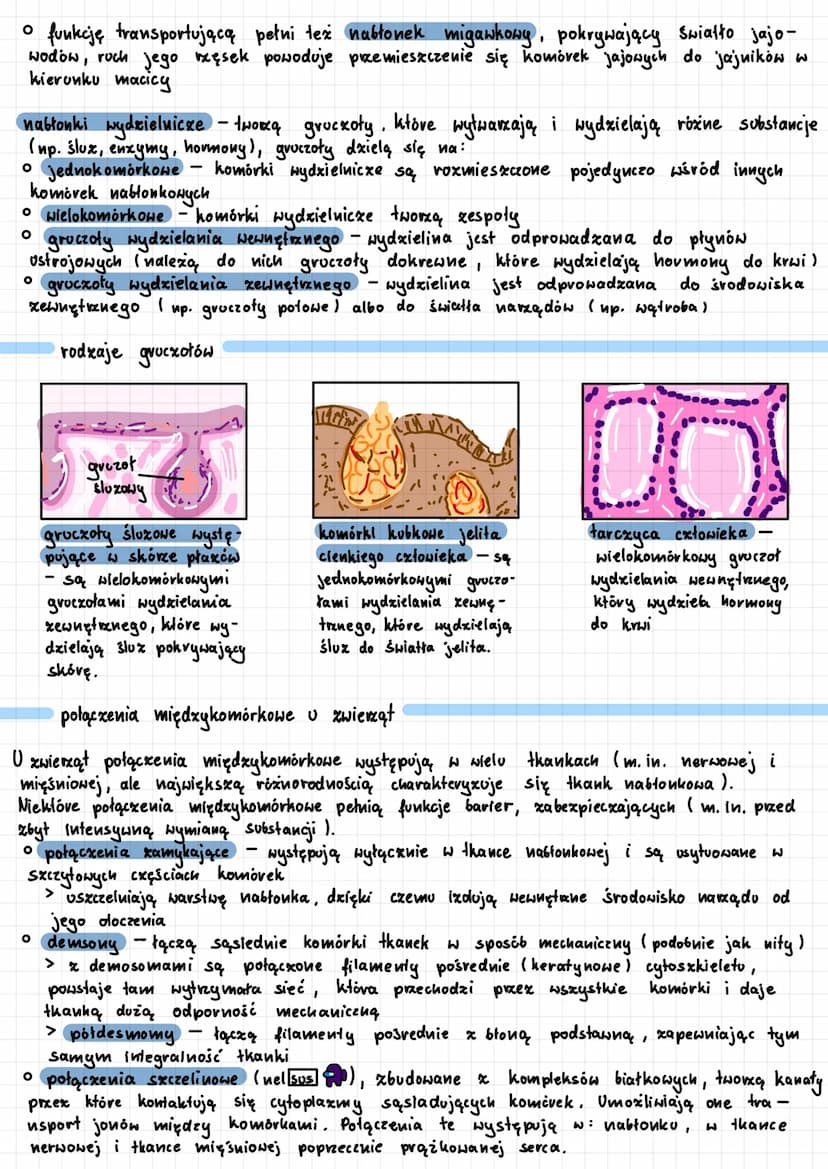 ° funkcję transportującą pełni też nabłonek migawkowy, pokrywający światło jajo-
wodów, ruch jego rzęsek powoduje przemieszczenie się komórek jajowych do jajników w
kierunku macicy
nabłonki wydzielnicze – tworzą gruczoły, które wytwarzają i wydzielają różne substancje
(np. śluz, enzymy, hormony), gruczoły dzielą się na:
° jednokomórkowe – komórki wydzielnicze są rozmieszczone pojedynczo wśród innych
komórek nabłonkowych
° wielokomórkowe – komórki wydzielnicze tworzą zespoły
° gruczoły wydzielania wewnętrznego – wydzielina jest odprowadzana do płynów
ustrojowych (należą do nich gruczoły dokrewne, które wydzielają hormony do krwi)
° gruczoły wydzielania zewnętrznego – wydzielina jest odprowadzana do środowiska
zewnętrznego (np. gruczoły potowe) albo do światła narządów (np. wątroba)
rodzaje gruczołów
gruczoł
śluzowy
gruczoły śluzowe wystę-
pujące w skórze płazów
– są wielokomórkowymi
gruczołami wydzielania
zewnętrznego, które wy-
dzielają śluz pokrywający
skórę.
komórki kubkowe jelita
cienkiego człowieka – są
jednokomórkowymi gruczo-
łami wydzielania zewnę-
trznego, które wydzielają
śluz do światła jelita.
tarczyca człowieka –
wielokomórkowy gruczoł
wydzielania wewnętrznego,
który wydziela hormony
do krwi
połączenia międzykomórkowe u zwierząt
U zwierząt połączenia międzykomórkowe występują w wielu tkankach (m.in. nerwowej i
mięśniowej, ale największą różnorodnością charakteryzuje się tkank nabłonkowa).
Niektóre połączenia międzykomórkowe pełnią funkcje barier, zabezpieczających (m.in. przed
zbyt intensywną wymianą substancji).
° połączenia zamykające – występują wyłącznie w tkance nabłonkowej i są usytuowane w
szczytowych częściach komórek
> uszczelniają warstwę nabłonka, dzięki czemu izolują wewnętrzne środowisko narządu od
jego otoczenia
° demsony – łączą sąsiednie komórki tkanek w sposób mechaniczny (podobnie jak nity)
> z demosomami są połączone filamenty pośrednie (keratynowe) cytoszkieletu,
powstaje tam wytrzymała sieć, która przechodzi przez wszystkie komórki i daje
tkanką dużą odporność mechaniczną
> półdesmomy – łączą filamenty pośrednie z błoną podstawną, zapewniając tym
samym integralność tkanki
° połączenia szczelinowe (neksus), zbudowane z kompleksów białkowych, tworzą kanały
przez które kontaktują się cytoplazmy sąsiadujących komórek. Umożliwiają one tra-
nsport jonów między komórkami. Połączenia te występują w: nabłonku, w tkance
nerwowej i tkance mięśniowej poprzecznie prążkowanej serca.